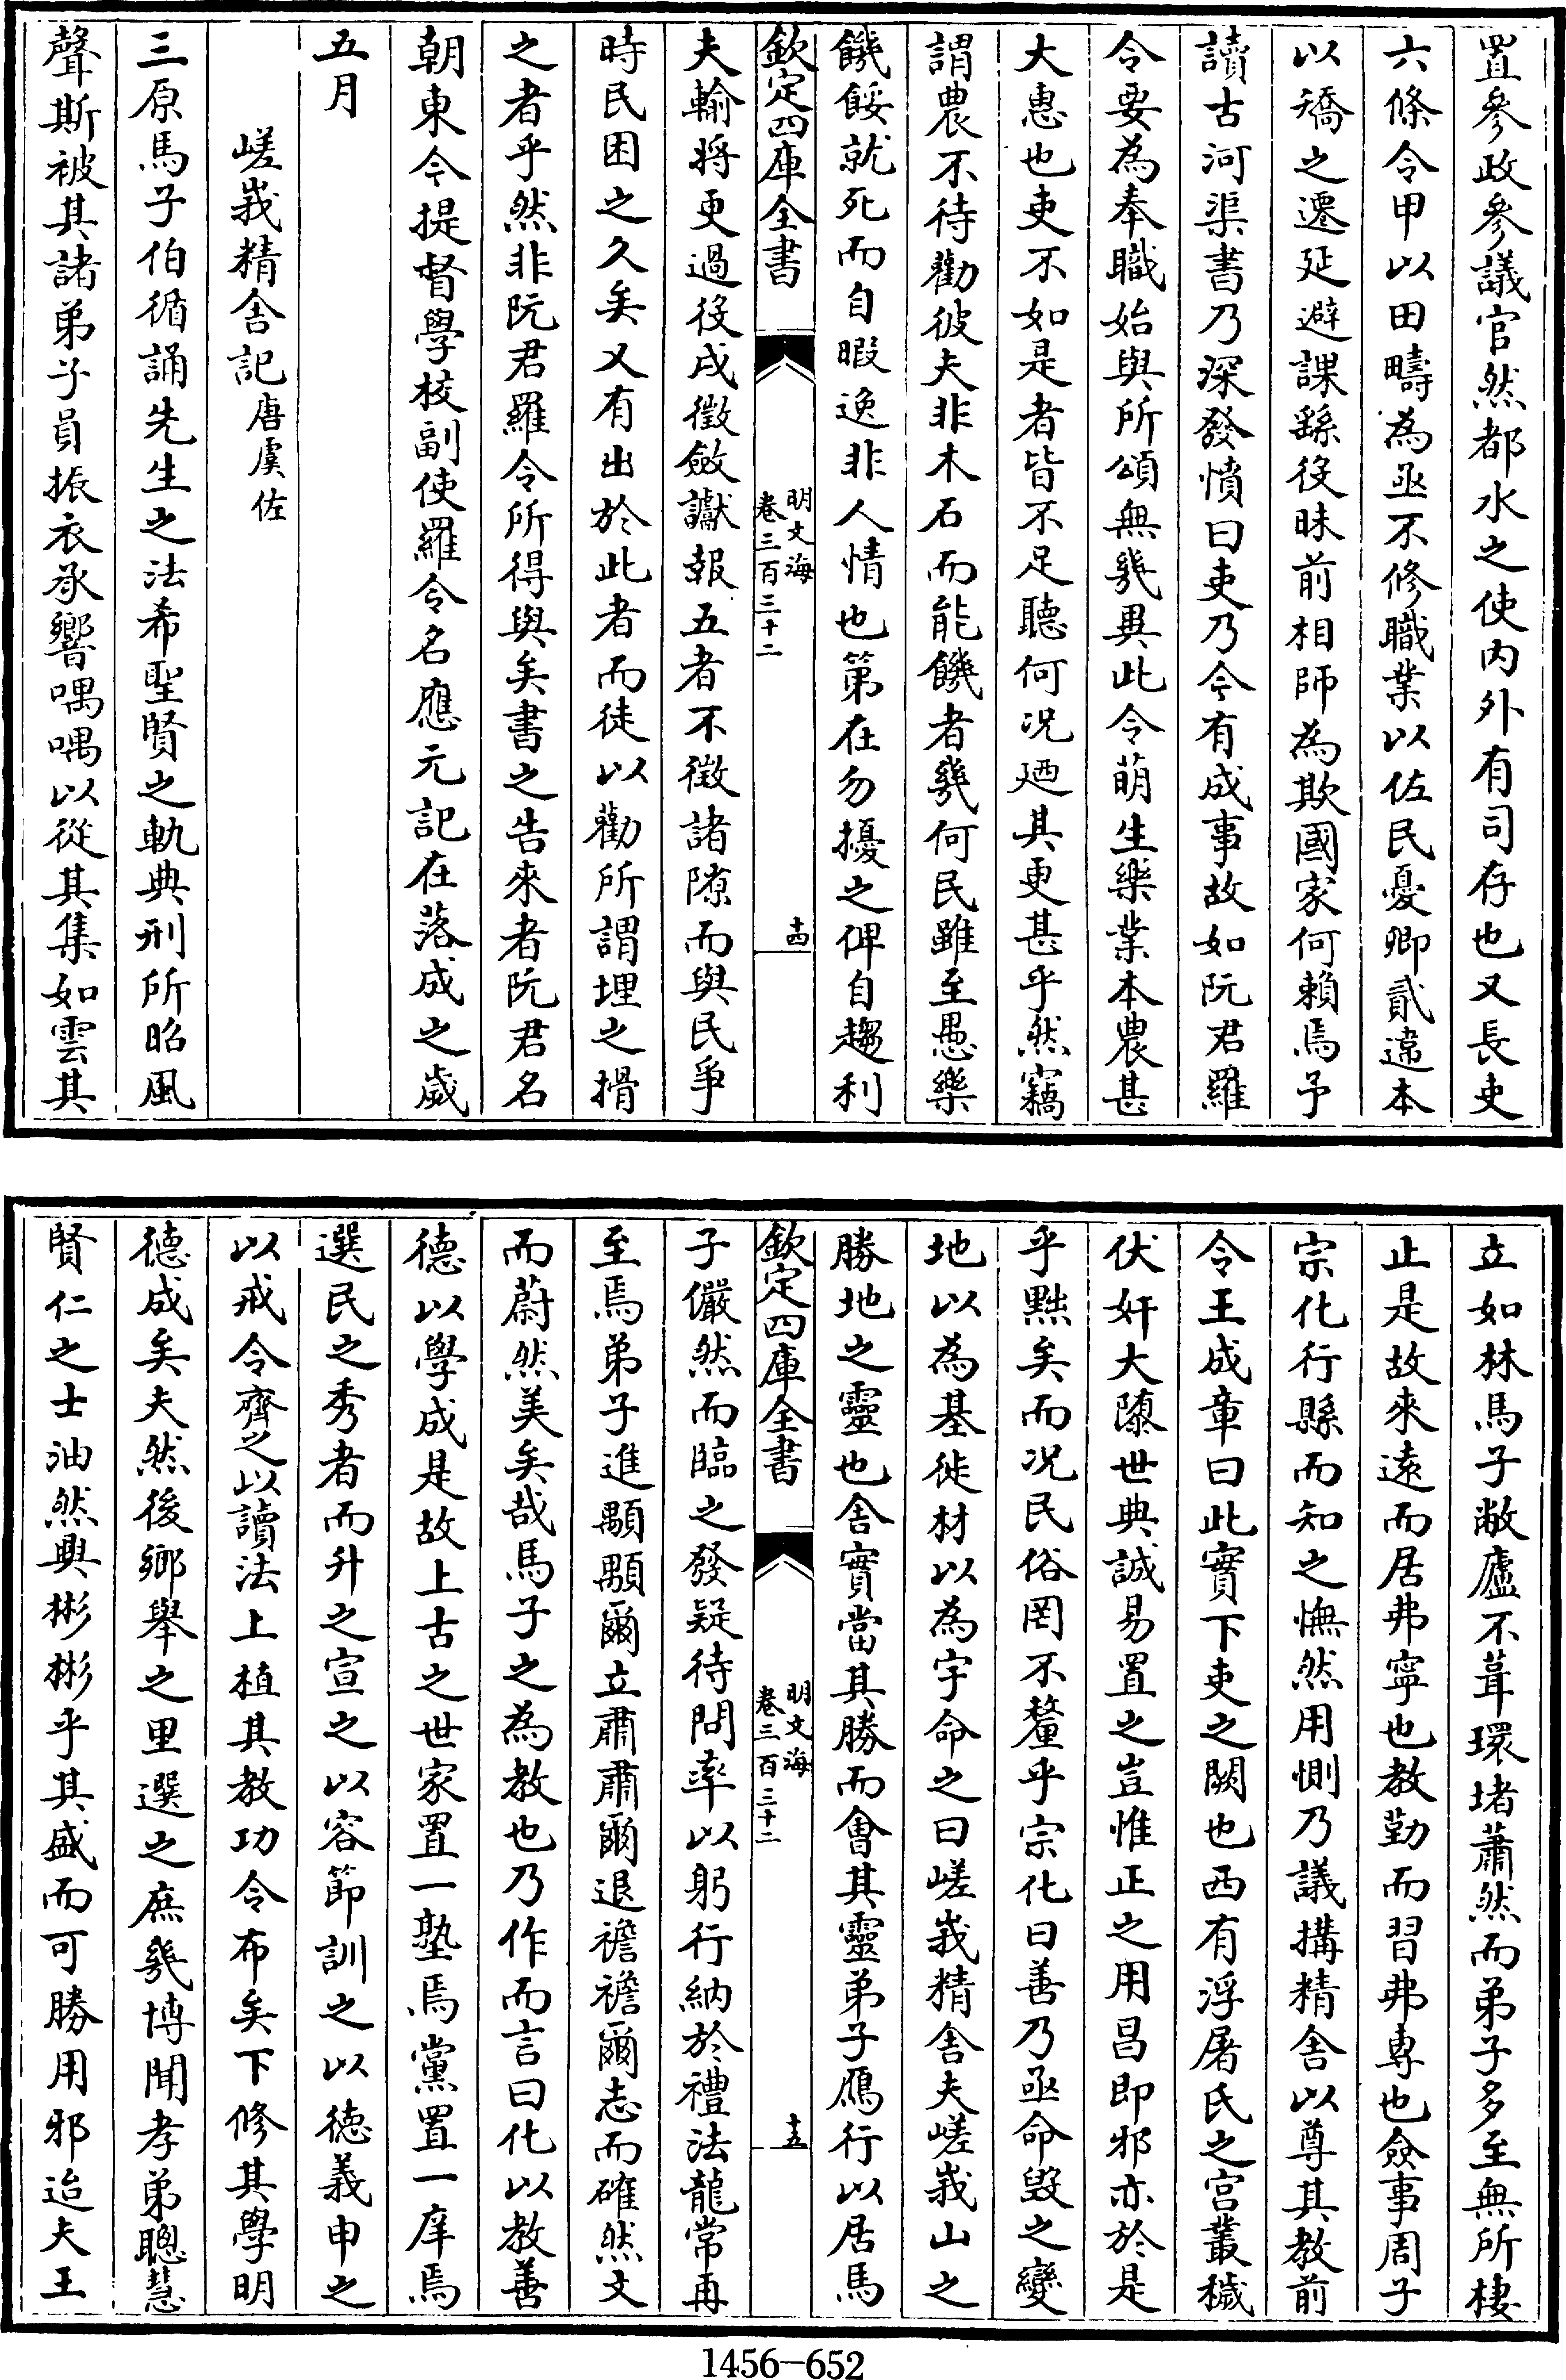 置參政參議官然都水之使内外有司存也又長吏
六條令甲以田疇為亟不修職業以佐民憂卿貳違本
以矯之遷延避課繇役昧前相師為欺國家何賴焉予
讀古河渠書乃深發憤曰吏乃今有成事故如阮君羅
令要為奉職始與所頌無㡬異此令萌生樂業本農甚
大惠也吏不如是者皆不足聽何况廼其更甚乎然竊
謂農不待勸彼夫非木石而能饑者㡬何民雖至愚樂
饑餒就死而自暇逸非人情也第在勿擾之俾自趨利
欽定四庫全書
明文海
卷三百三十二
十四
夫輸將更過役戍徵斂讞報五者不徵諸隙而與民爭
時民困之久矣又有出於此者而徒以勸所謂埋之搰
之者乎然非阮君羅令所得與矣書之告來者阮君名
朝東今提督學校副使羅令名應元記在落成之歲
五月
嵯峩精舍記唐虞佐
三原馬子伯循誦先生之法希聖賢之軌典刑所昭風
聲斯被其諸弟子員振衣承響喁喁以從其集如雲其
立如林馬子敝廬不葺環堵蕭然而弟子多至無所棲
止是故來遠而居弗寧也教勤而習弗專也僉事周子
宗化行縣而知之憮然用惻乃議搆精舍以尊其教前
令王成章曰此實下吏之闕也西有浮屠氏之宫叢穢
伏奸大隳世典誠易置之豈惟正之用昌即邪亦於是
乎黜矣而况民俗罔不釐乎宗化曰善乃亟命毁之變
地以為基徙材以為宇命之曰嵯峩精舍夫嵯峩山之
勝地之靈也舍實當其勝而會其靈弟子鴈行以居馬
欽定四庫全書
明文海
卷三百三十二
十五
子儼然而臨之發疑待問率以躬行納於禮法龍常再
至焉弟子進顒顒爾立肅肅爾退襜襜爾志而確然文
而蔚然美矣哉馬子之為教也乃作而言曰化以教善
德以學成是故上古之世家置一塾焉黨置一庠焉
選民之秀者而升之宣之以容節訓之以德義申之
以戒令齊之以讀法上植其教功令布矣下修其學明
德成矣夫然後鄉舉之里選之庶㡬博聞孝弟聰慧
賢仁之士油然興彬彬乎其盛而可勝用邪迨夫王
1456-652